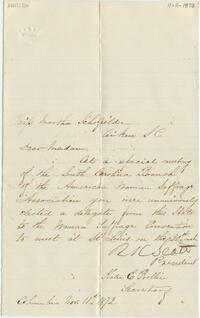 11-11-1872
Miss Martha Schofield
Aiken S C
Dear Madam
At a special meeting
of the South Carolina Branch
of the American Woman Suffrage
Association you were unanimously
elected a delegate from this State
to the Woman Suffrage Convention
to meet at St Louis on the
R K Scott
President
Secretary
Columbia Nov. 11th 1872